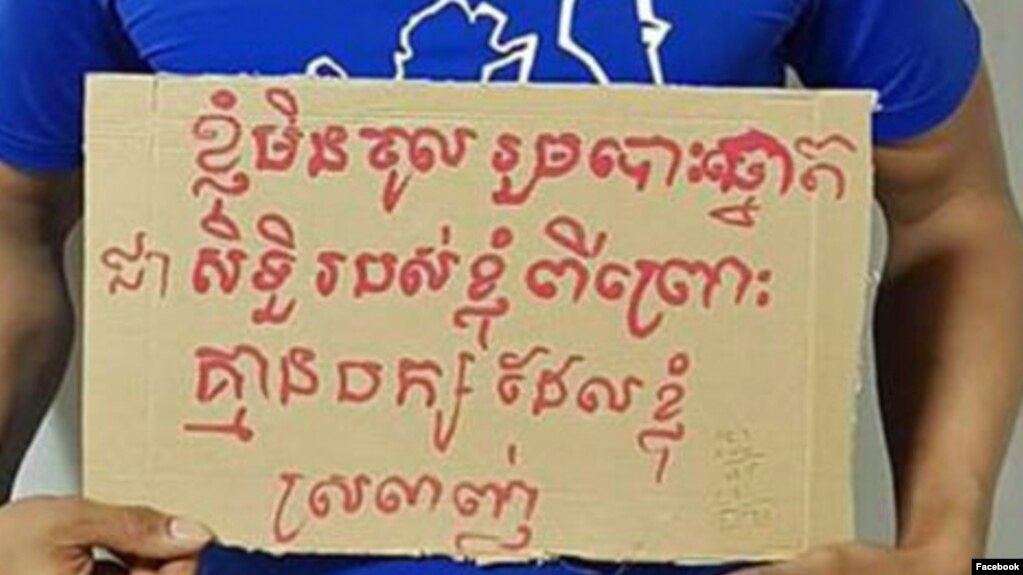 ខ្ញុំមិនចូល រួមបោះឆ្នោត
ជា សិទ្ធិ របស់ខ្ញុំ ពីព្រោះ
គ្មានបក្ស ដែលខ្ញុំ
ស្រលាញ់
Facebook